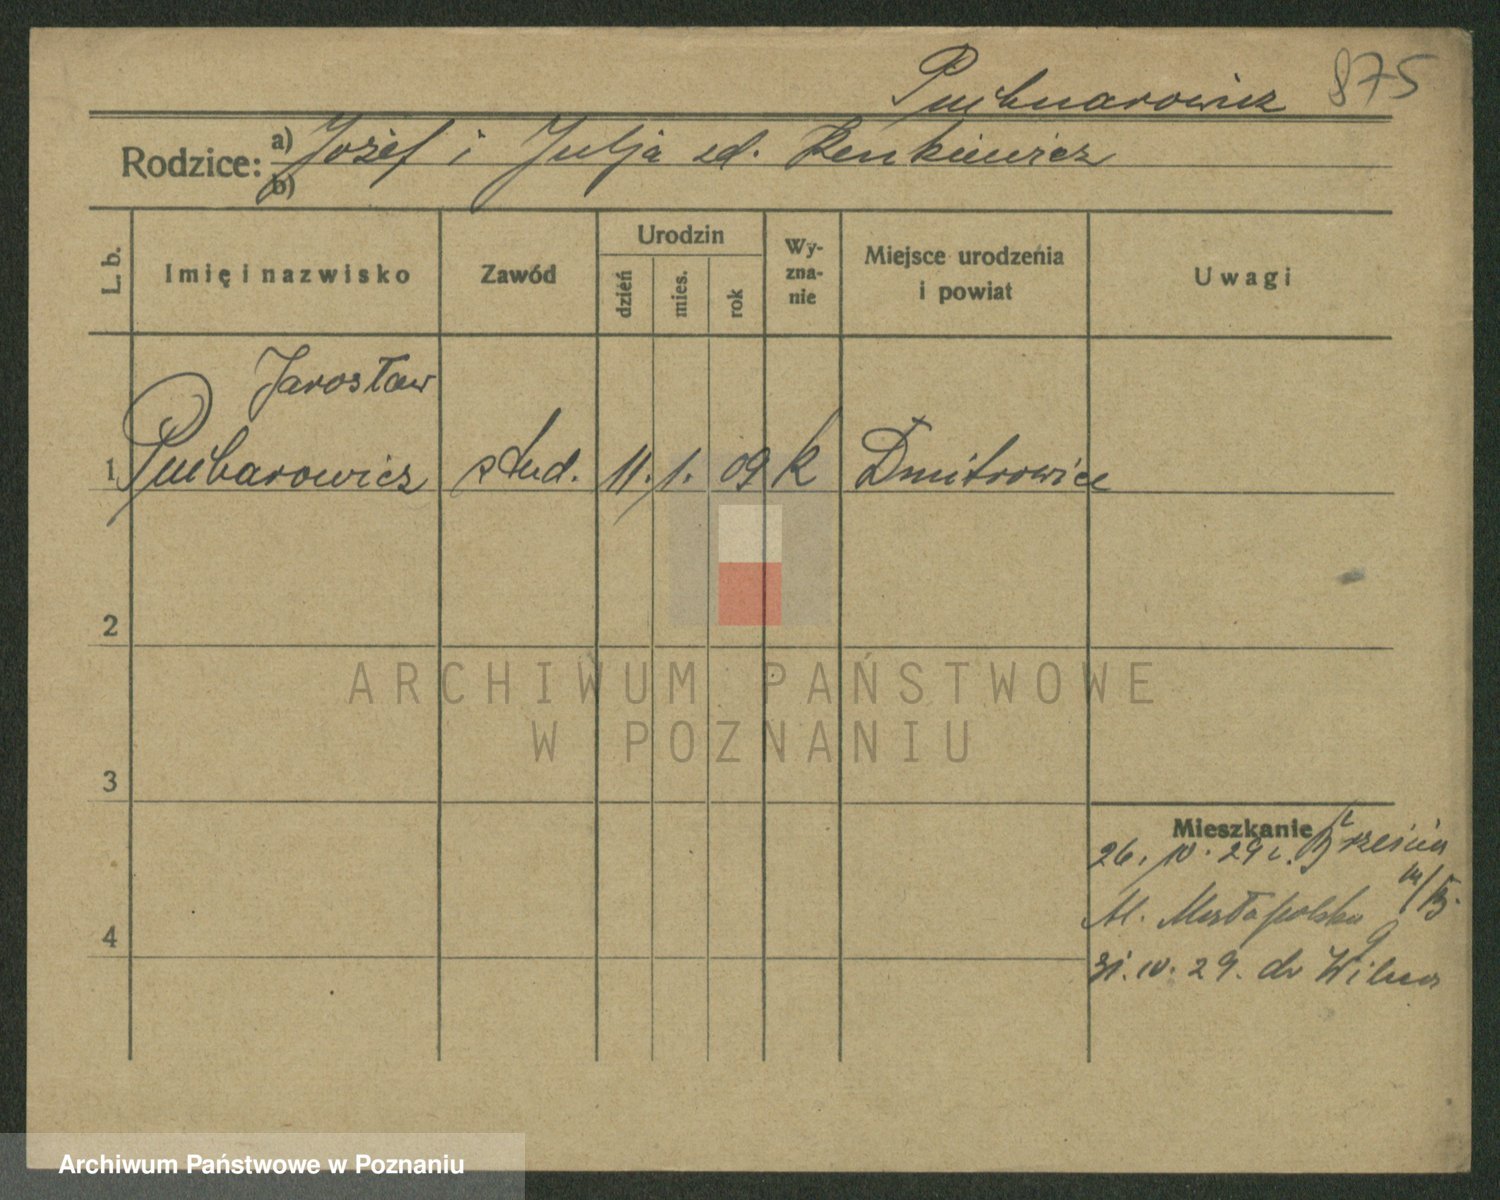 875
Rodzice: a) Józef i Julja zd. Renkiewicz
b)
L. b.
Imię i nazwisko
Zawód
Urodzin
dzień
mies.
rok
Wy-
zna-
nie
Miejsce urodzenia
i powiat
Uwagi
Jarosław
1 stud. 11. 1. 09 k Dmitrowice
2
3
4
Mieszkanie
26. IV. 29 z Brześcia
n/B.
Małopolska 9
31. IV. 29. do Wilna
ARCHIWUM PAŃSTWOWE
W POZNANIU
Archiwum Państwowe w Poznaniu